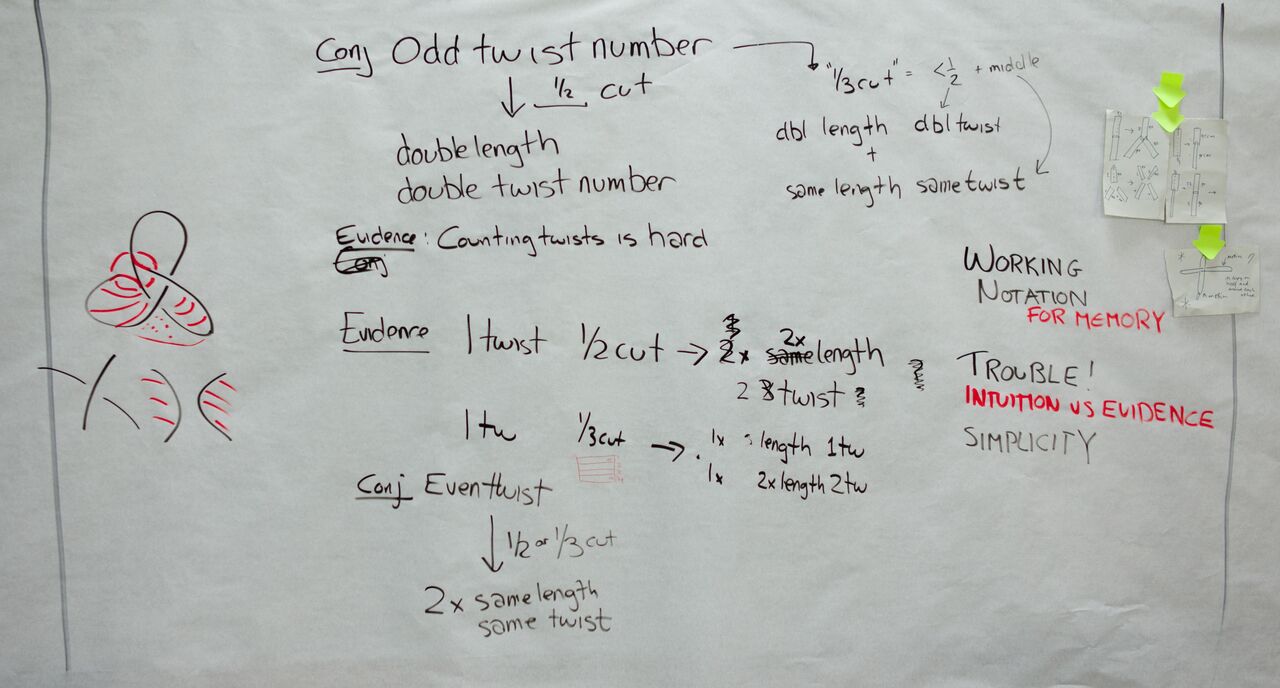 Conj Odd twist number
1/2 cut
double length
double twist number
"1/3 cut" = < 1/2 + middle
dbl length dbl twist
+
same length same twist
Evidence: Counting twists is hard
Conj
Evidence 1 twist 1/2 cut → 2x same 2x length
2 twist
1 tw 1/3 cut → 1x length 1tw
1x 2x length 2tw
Conj Even twist
1/2 or 1/3 cut
2x same length
same twist
WORKING
NOTATION
FOR MEMORY
TROUBLE!
INTUITION VS EVIDENCE
SIMPLICITY